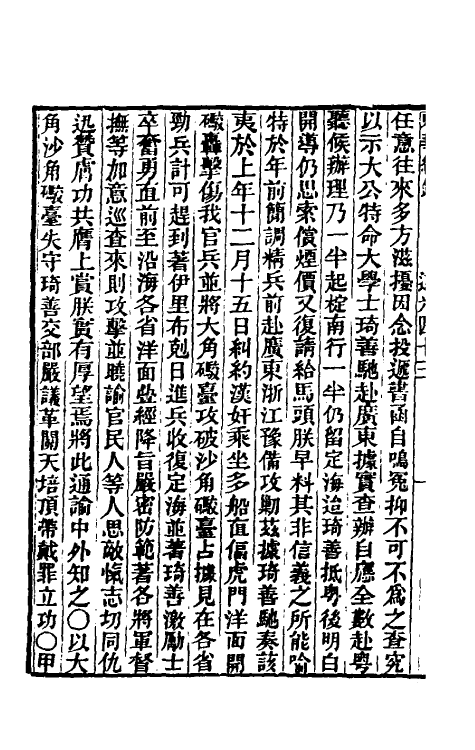 任意往來多方滋擾因念投遞書函自鳴冤抑不可不爲之查究
以示大公特命大學士琦善馳赴廣東據實查辦自應全數赴粤
聽候辦理乃一半起椗南行一半仍留定海迨琦善抵粤後明白
開導仍思索償煙價又復請給馬頭朕早料其非信義之所能喻
特於年前簡調精兵前赴廣東浙江豫備攻勦茲據琦善馳奏該
夷於上年十二月十五日糾約漢奸乘坐多船直偪虎門洋面開
礮轟擊傷我官兵並將大角礮臺攻破沙角礮臺占據見在各省
勁兵計可趕到著伊里布剋日進兵收復定海並著琦善激勵士
卒奮勇直前至沿海各省洋面疊經降旨嚴密防範著各將軍督
撫等加意巡查來則攻擊並曉諭官民人等人思敵愾志切同仇
迅贊膚功共膺上賞朕實有厚望焉將此通諭中外知之〇以大
角沙角礮臺失守琦善交部嚴議革關天培頂帶戴罪立功〇甲